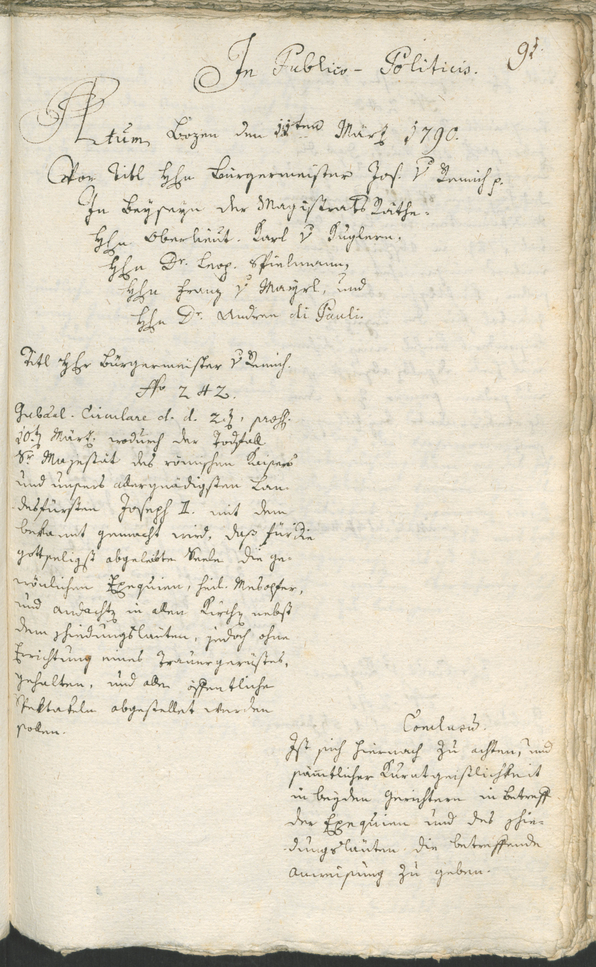 In Publico-Politicis.
91.
Actum Bozen den 11ten März 1790.
Vor Titl Hhn Bürgermeister Jos. v Remich p.
In Beyseyn der Magistrats Räthe.
Hhn Oberlieut. Karl v Kuglern.
Hhn Dr. Leop. Spielmann,
Hhn Franz v Mayrl, und
Hhn Dr. Andreen di Pauli.
Titl Hhr Bürgermeister v Remich.
No 242.
Gubal. Circulare d. d. 2t,
10t März wodurch der Todfall
Sr Majestät des römischen Kaisers
und unsers allergnädigsten Lan-
desfürsten Joseph II. mit dem
bekannt gemacht wird, daß für die
gottseligst abgelebte Seele die ge-
wönlichen Exequien, heil. Mesopfer,
und andachtn in allen Kirchn nebst
dem schiedungsläuten, jedoch ohne
Errichtung eines Trauergerüstes,
gehalten, und alle öffentliche
Spektakeln abgestellet werden
sollen.
Conclusum.
Ist sich hiernach zu achten, und
sämtlicher Kuratgeistlichkeit
in beyden Gerichtern in betreff
der Exequien und des schie-
dungsläuten die betreffende
anweisung zu geben.